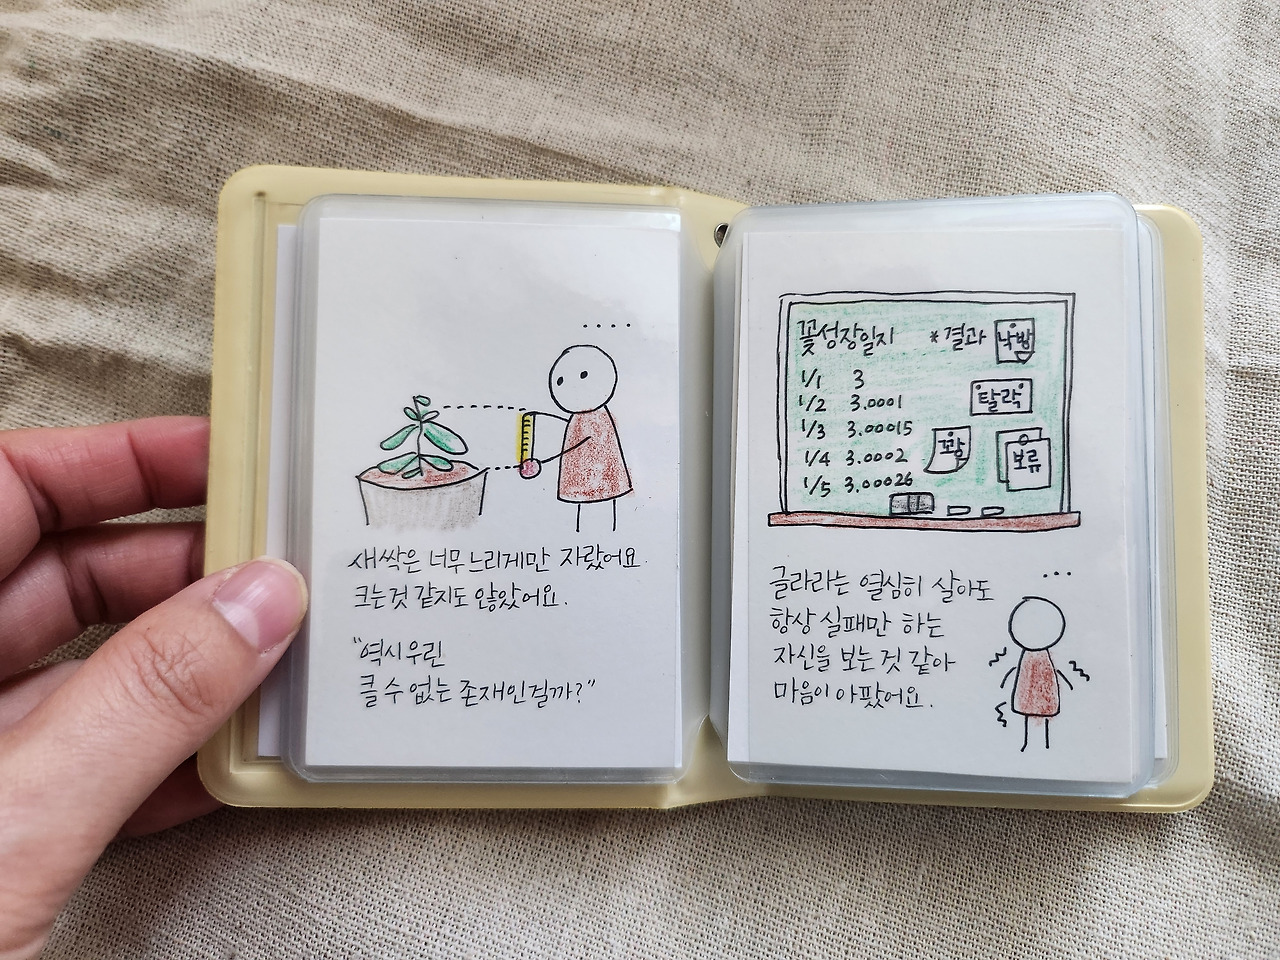 ....
새싹은 너무 느리게만 자랐어요.
크는것 같지도 않았어요.
“역시 우린
클 수 없는 존재인걸까?”
꽃성장일지 *결과 낙방
1/1 3
1/2 3.0001
탈락
1/3 3.00015
1/4 3.0002
꽝
보류
1/5 3.00026
...
글라라는 열심히 살아도
항상 실패만 하는
자신을 보는 것 같아
마음이 아팠어요.